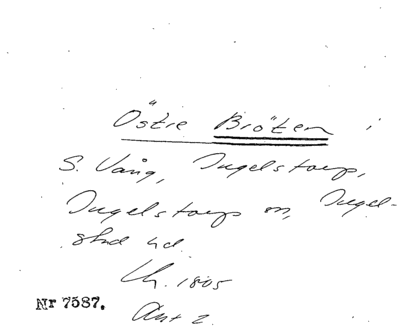 Östre Bröten i
S. Vång, Ingelstorp,
Ingelstorps sn, Ingel-
stad hd.
Lh. 1805
Akt 2
Nr 7587.